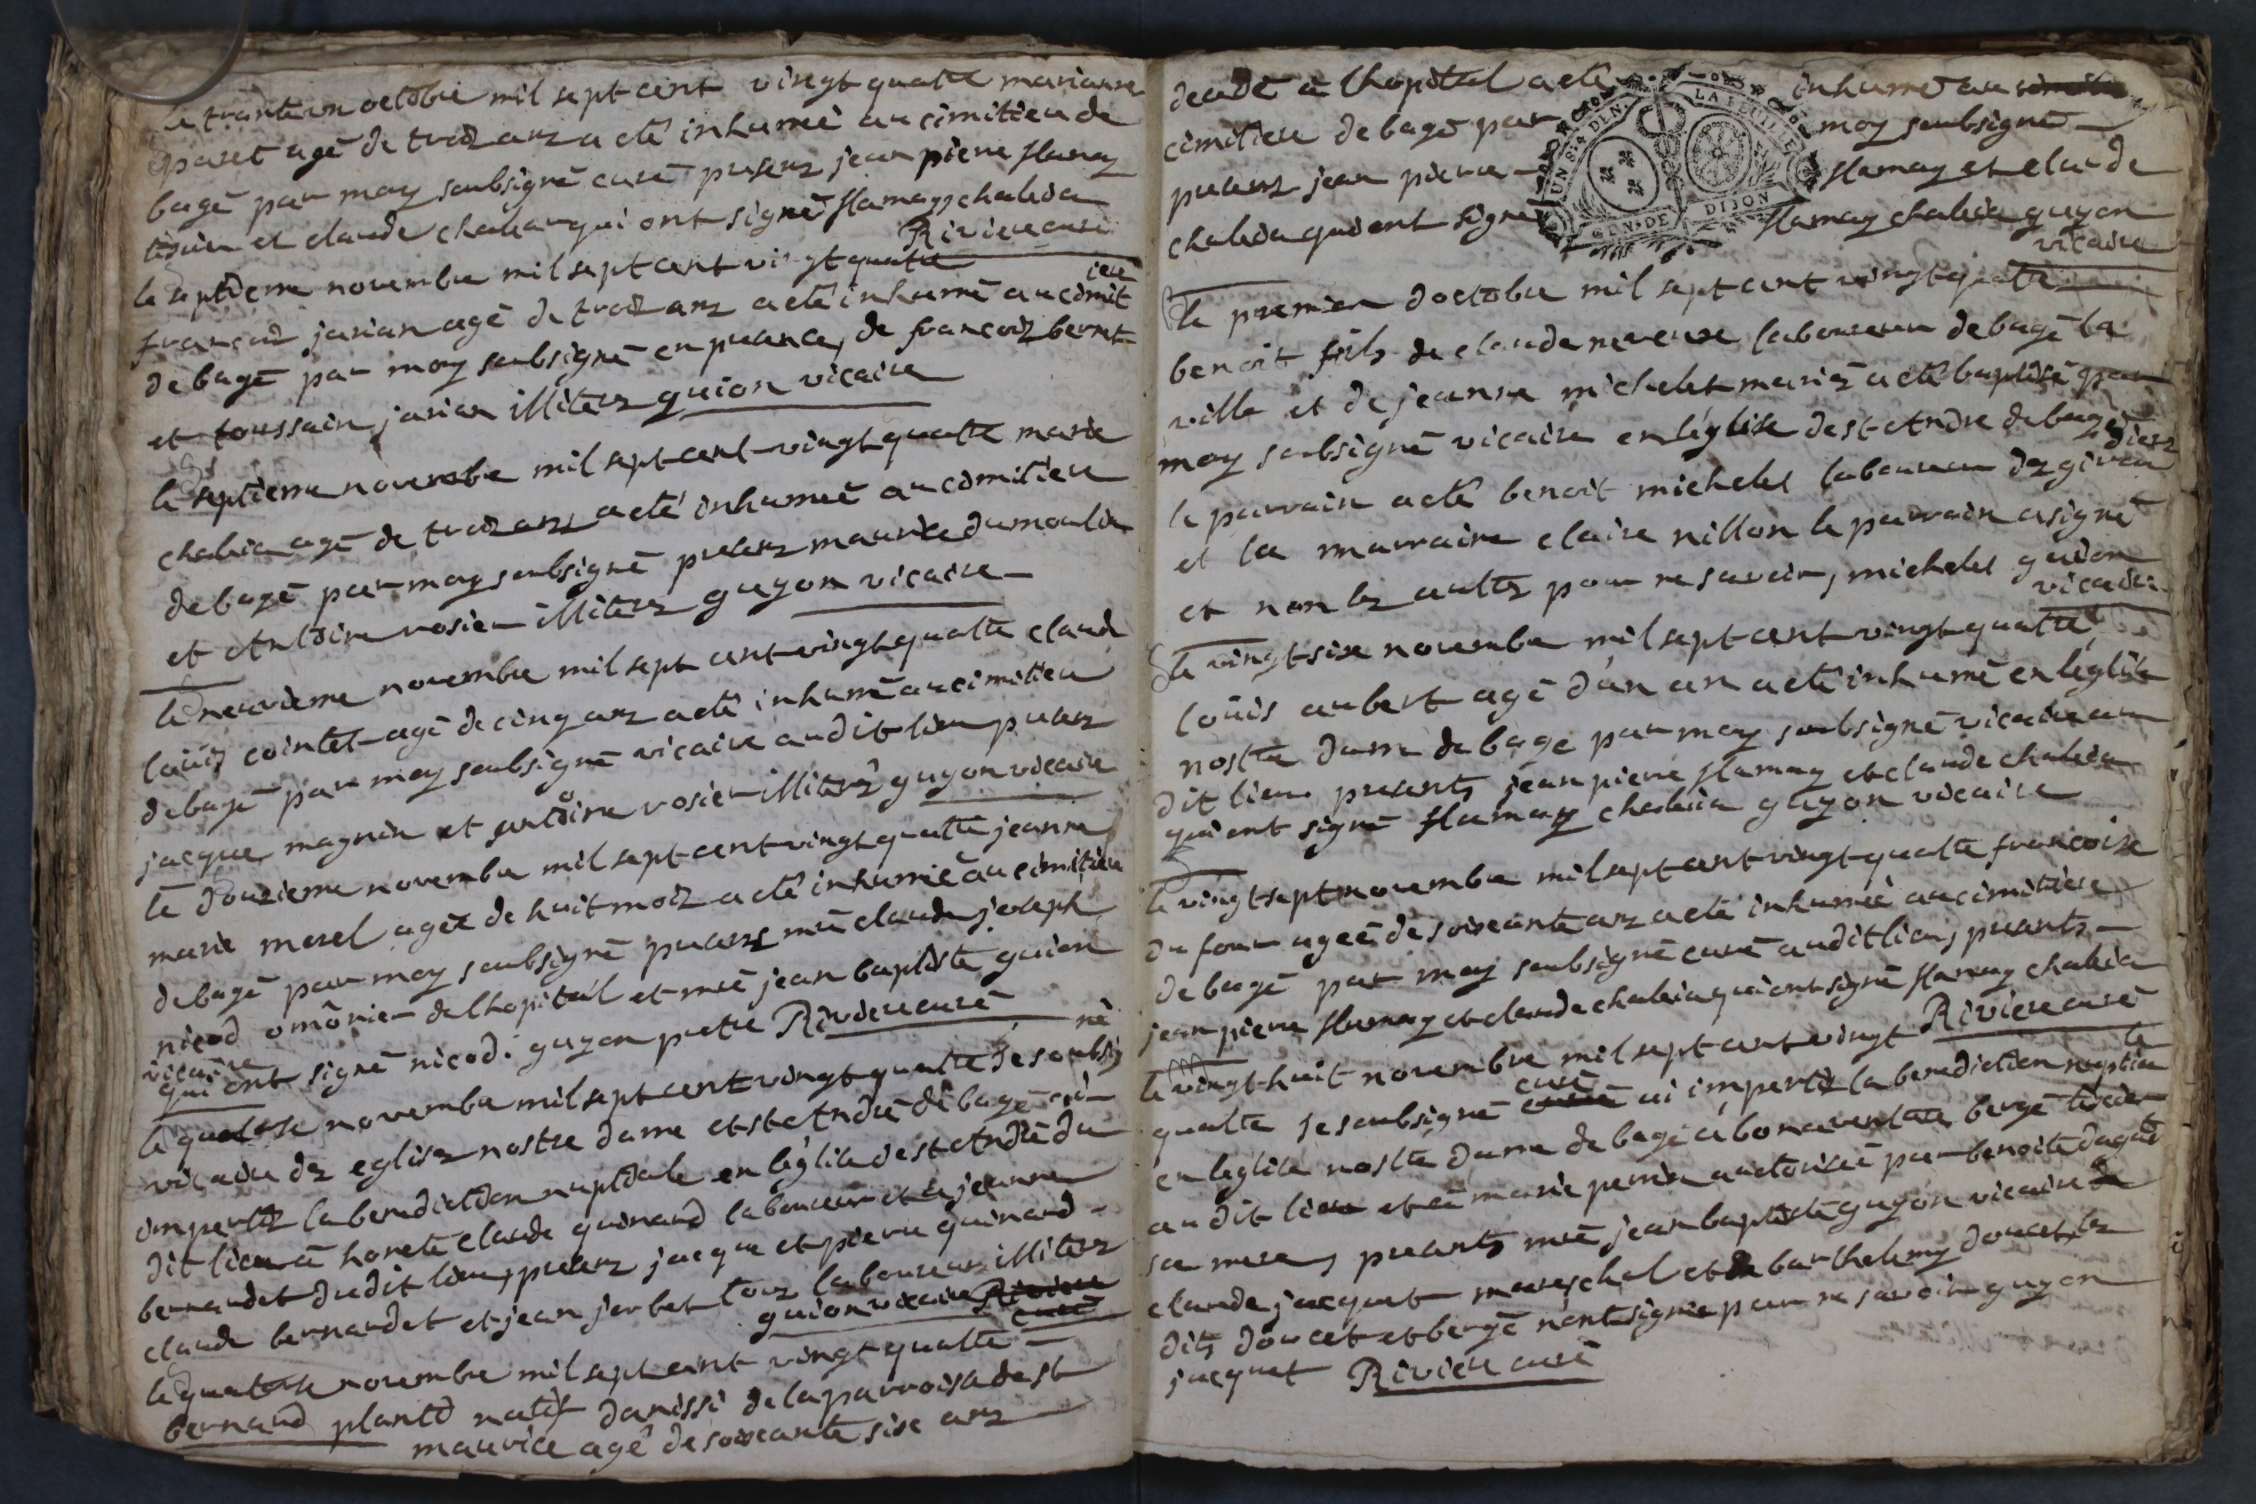 le trante un octobre mil sept cent vingt quatre marianne
paret agé de trois ans a eté inhumeé au cimitieu de
bagé par moy soubsigné curé presens jean piere flamay
tisier et claude chalvia qui ont signé flamay chalvia
Riviere curé
le septieme novembre mil sept cent vingt quatre
françois jarian agé de trois ans a eté inhumé au cimit
iere
de bagé par moy soubsigné en presence, de françois bernet
et toussain jarian illiteres guion vicaire
le septieme novembre mil sept cent vingt quatre marie
chalvia agé de trois ans a eté inhumeé au cimitieu
de bagé par moy soubsigné presens maurice dumoulin
et antoine rosier illiteres guyon vicaire
le neuvieme novembre mil sept cent vingt quatre claud
louis cointet agé de cinq ans a eté inhumé au cimitieu
de bagé par moy soubsigné vicaire audit lieu presens
jacque magnin et antoine rosier illiteres guyon vicaire
le douzieme novembre mil sept cent vingt quatre jeanne
marie morel ageé de huit mois a eté inhumeé au cimitiere
de bagé par moy soubsigné presens mre claude joseph
nicod omônier de lhopital et mre jean baptiste guion
vicaire
qui ont signé nicod. guyon pretre Riviere curé
le quatorse novembre mil sept cent vingt quatre Je soubsig
né
vicaire des eglises nostre dame et st Andre de bagé ai
impertis la benediction nuptiale en léglise de st Andre du
dit lieu a honete claude guinard laboureur et a jeanne
bernardet dudit lieu, presens jacque et pierre guinard
claude bernardet et jean jerbet tous laboureurs illiteres
guion vicaire Riviere
curé
le quatorse novembre mil sept cent vingt quatre
bernard planto natif danissi de la parroisse de st
maurice agé de soixeante sise ans
decedé a lhopital a eté inhumé au cimitie
cimitieu de bagé par moy soubsigné
presens jean pierre flamay et claude
chalvia qui ont signé flamay chalvia guyon
vicaire
GEN. DE DIJON
UN S. 8 DEN. LA FEUILLE
le premier doctobre mil sept cent vingt quatre
benoit fils de claude neveuse laboureur de bagé la
ville et de jeanne michelet mariés a eté baptisé par
moy soubsigné vicaire en léglise de st Andre de bagé
le parrain a eté benoit michelet laboureur des
et la marraine claire nillon le parrain a signé
et non les aultres pour ne savoir, michelet guion
vicaire
le vingt sise novembre mil sept cent vingt quatre
loüis aubert agé d'un an a eté inhumé en léglise
nostre dame de bage par moy soubsigné vicaire au
dit lieu presents jean piere flamay et claude chalvia
qui ont signé flamay chalvia guyon vicaire
le vingt sept novembre mil sept cent vingt quatre francoise
du four ageé de soixante ans a eté inhumeé au cimitiere
de bagé par moy soubsigné curé audit lieu, presents
jean piere flamay et claude chalvia qui ont signé flamay chalvia
Riviere curé
le vingt huit novembre mil sept cent vingt
quatre je soubsigné curé ai impertis la benediction nuptia
le
en léglise nostre dame de bagé a bonaventure bergé tisier
audit lieu et a marie perrin auctorisée par benoite dagat
sa mere, presents mre jean baptiste guyon vicaire
claude jacquet mareschal et barthelemy doucet, les
dits doucet et bergé n'ont signé pour ne savoir guyon
jacquet Riviere curé